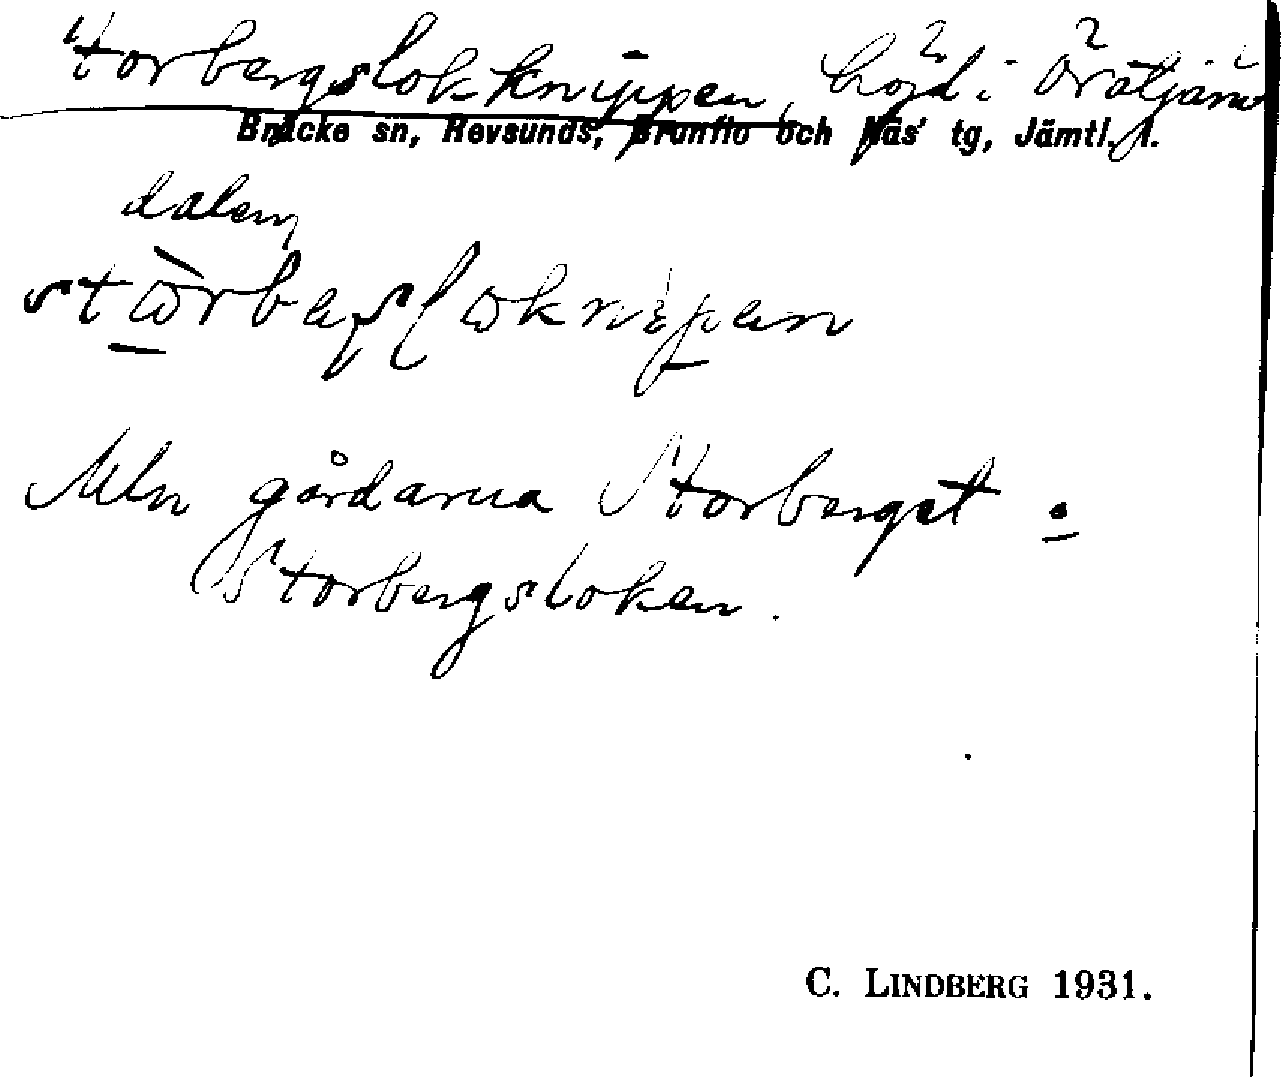 torbergslokknippen, höjd i Öråtjärn
Bräcke sn, Revsunds, Brunflo och Näs' tg, Jämtl. l.
dalen
Mln gårdarna Storberget o
Storbergsloken.
C. LINDBERG 1931.